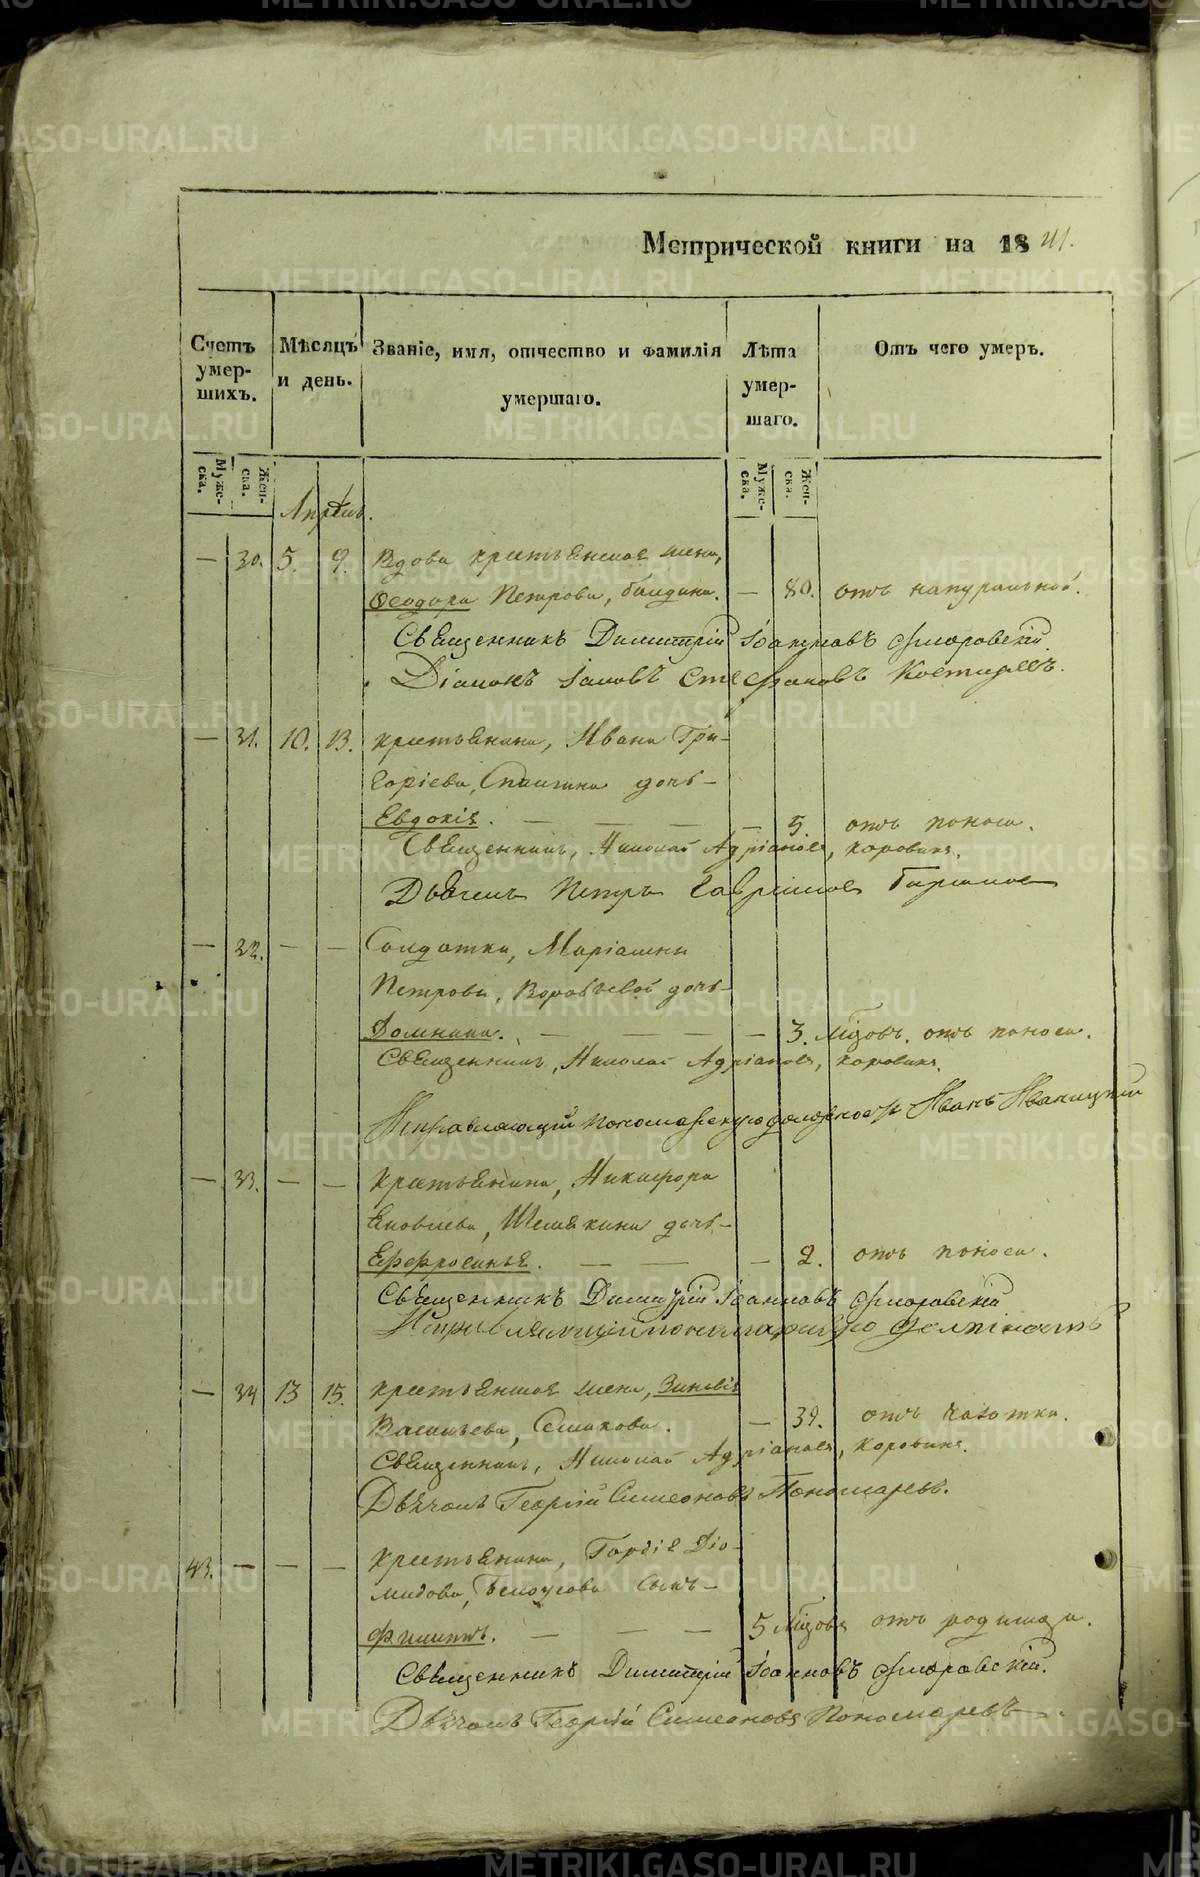 Метрической книги на 1841.
Счетъ умершихъ.
Мѣсяцъ и день.
Званіе, имя, отчество и фамилія умершаго.
Лѣта умершаго.
Отъ чего умеръ.
Мужеска.
Женска.
Мужеска.
Женска.
Апрѣль.
— 30. 5. 9. Вдова крестьянская жена,
Ѳеодора Петрова, — 80. отъ натуральной.
Священникъ Димитрій Іоанновъ
Діаконъ Іаковъ Стефановъ
— 31. 10. 13. крестьянина, Ивана Гри-
горіева, дочь
Евдокія. — — — — 5. отъ поноса.
Священникъ, Николай Адріановъ, Коровинъ.
Дьячекъ Петръ Гавриловъ
— 32. — — Солдатки, Маріамны
Петровы, Воробьевой дочь
Домника. — — — — 3. мцовъ. отъ поноса.
Священникъ, Николай Адріановъ, Коровинъ.
Исправляющій Пономарскую должность Иванъ Иваницкий
— 33. — — крестьянина, Никифора
Яковлева, Шемякина дочь
Ефросинья. — — — 2. отъ поноса.
Священникъ Димитрій Іоанновъ
Исправляющій пономарскую должность
— 34 13 15. крестьянская жена, Зиновія
Васильева, Семакова. — 39. отъ чахотки.
Священникъ, Николай Адріановъ, Коровинъ.
Дьячокъ Георгій Симеоновъ Пономаревъ.
43. — — — крестьянина, Гордія Діо-
мидова, Белоусова сынъ
Филиппъ. — — — 5 мцовъ отъ родимца.
Священникъ Димитрій Іоанновъ
Дьячокъ Георгій Симеоновъ Пономаревъ.
METRIKI.GASO-URAL.RU